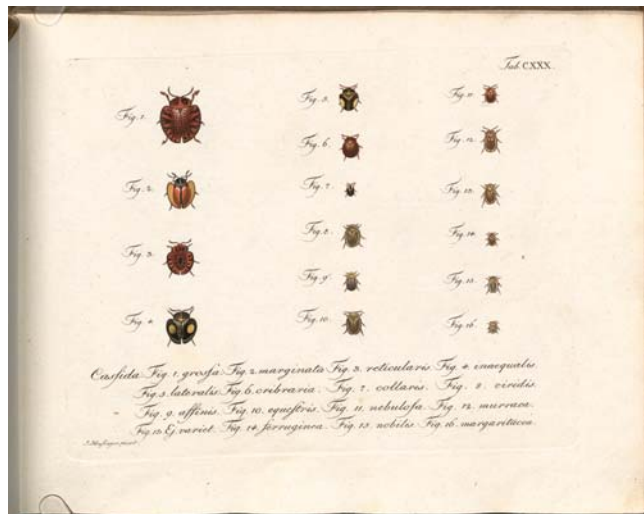 Tab. CXXX.
Fig. 1.
Fig. 2.
Fig. 3.
Fig. 4.
Fig. 5.
Fig. 6.
Fig. 7.
Fig. 8.
Fig. 9.
Fig. 10.
Fig. 11.
Fig. 12.
Fig. 13.
Fig. 14.
Fig. 15.
Fig. 16.
Caſsida Fig. 1. groſsa. Fig. 2. marginata. Fig. 3. reticularis. Fig. 4. inaequalis.
Fig. 5. lateralis. Fig. 6. cribraria. Fig. 7. collaris. Fig. 8. viridis.
Fig. 9. affinis. Fig. 10. equeſtris. Fig. 11. nebuloſa. Fig. 12. murraea.
Fig. 13. Ej. variet. Fig. 14. ferruginea. Fig. 15. nobilis. Fig. 16. margaritacea.